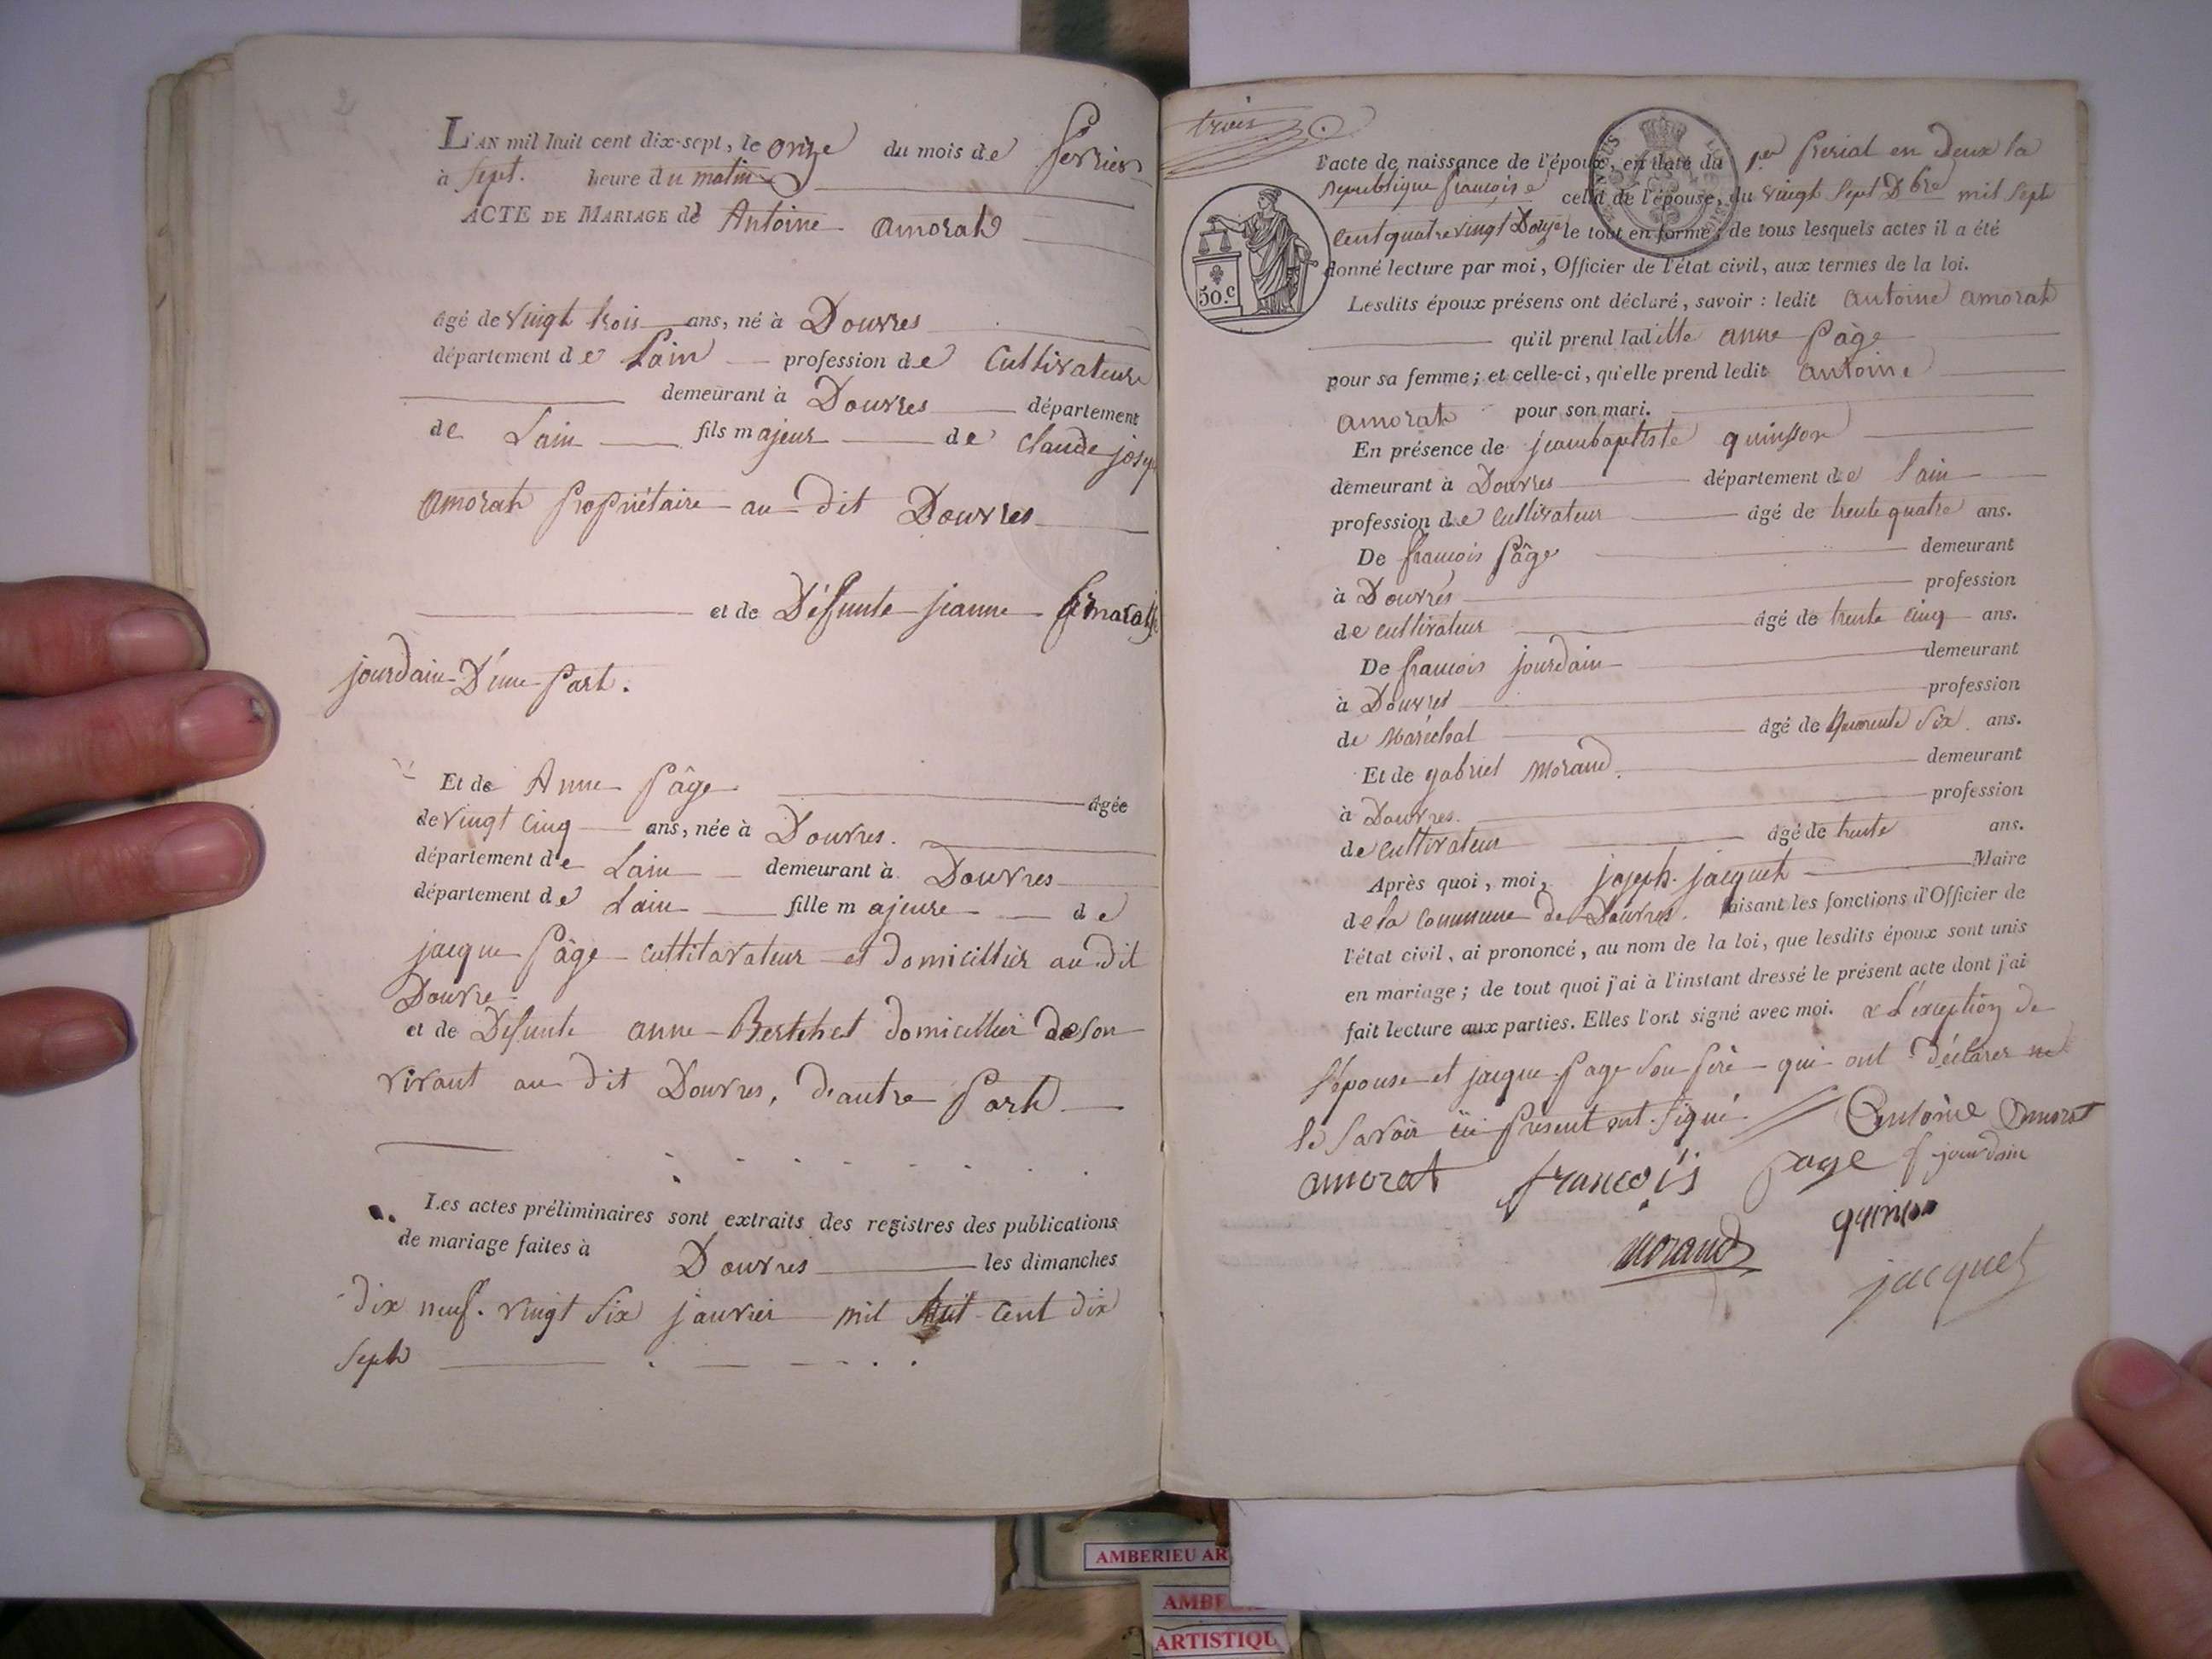 2
L'AN mil huit cent dix-sept, le onze du mois de fevrier
à sept. heure du matin
ACTE DE MARIAGE de Antoine amorat
âgé de vingt trois ans, né à Douvres
département de Lain profession de Cultivateur
demeurant à Douvres département
de Lain fils majeur de Claude josep
amorat propriétaire au dit Douvres
et de Défunte jeanne
jourdain D'une part.
Et de Anne Pâge âgée
de vingt cinq ans, née à Douvres.
département de Lain demeurant à Douvres
département de Lain fille majeure de
jacque Pâge cultitavateur et domicillier au dit
Douvre
et de Défunte anne Bertchet domicillier de son
vivant au dit Douvres, d'autre Part
Les actes préliminaires sont extraits des registres des publications
de mariage faites à Douvres les dimanches
dix neuf. vingt six janvier mil huit cent dix
sept
trois
l'acte de naissance de l'époux, en date du 1er prerial en deux la
republique françoise celui de l'épouse, du vingt sept Dbre mil sept
cent quatre vingt Douze le tout en forme; de tous lesquels actes il a été
donné lecture par moi, Officier de l'état civil, aux termes de la loi.
50.c
Lesdits époux présens ont déclaré, savoir : ledit antoine amorat
qu'il prend laditte anne Pâge
pour sa femme; et celle-ci, qu'elle prend ledit antoine
amorat pour son mari.
En présence de jeanbaptiste quinsson
demeurant à Douvres département de Lain
profession de cultivateur âgé de trente quatre ans.
De françois Pâge demeurant
à Douvres profession
de cultivateur âgé de trente cinq ans.
De françois jourdain demeurant
à Douvres profession
de Maréchal âgé de quarente six ans.
Et de gabriel Morand. demeurant
à Douvres. profession
de cultivateur âgé de trente ans.
Après quoi, moi, joseph jacquet Maire
de la commune de Douvres. faisant les fonctions d'Officier de
l'état civil, ai prononcé, au nom de la loi, que lesdits époux sont unis
en mariage; de tout quoi j'ai à l'instant dressé le présent acte dont j'ai
fait lecture aux parties. Elles l'ont signé avec moi. a l'exception de
l'épouse et jacque page son père qui ont déclarer ne
le savoir présent ont signé Antoine Amorat
amorat françois page f jourdain
morand quinson
jacquet
AMBERIEU AR
AMBE
ARTISTIQU